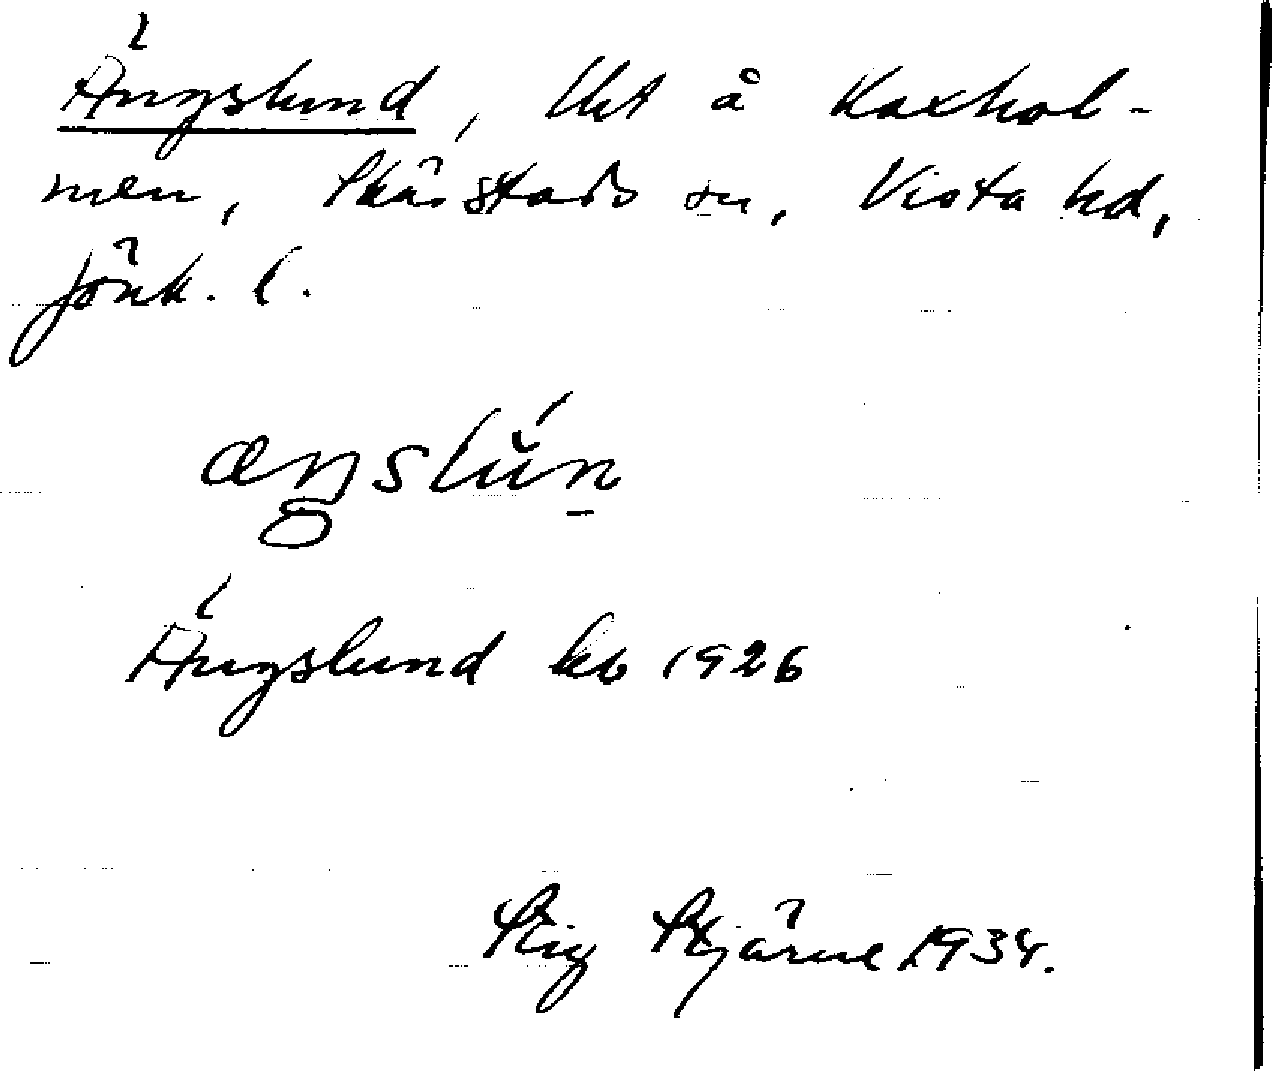 Ängslund, lht å Kaxhol-
men, Skärstads sn, Vista hd,
Jönk. l.
æŋslún
Ängslund kb 1926
Stig Stjärne 1934.